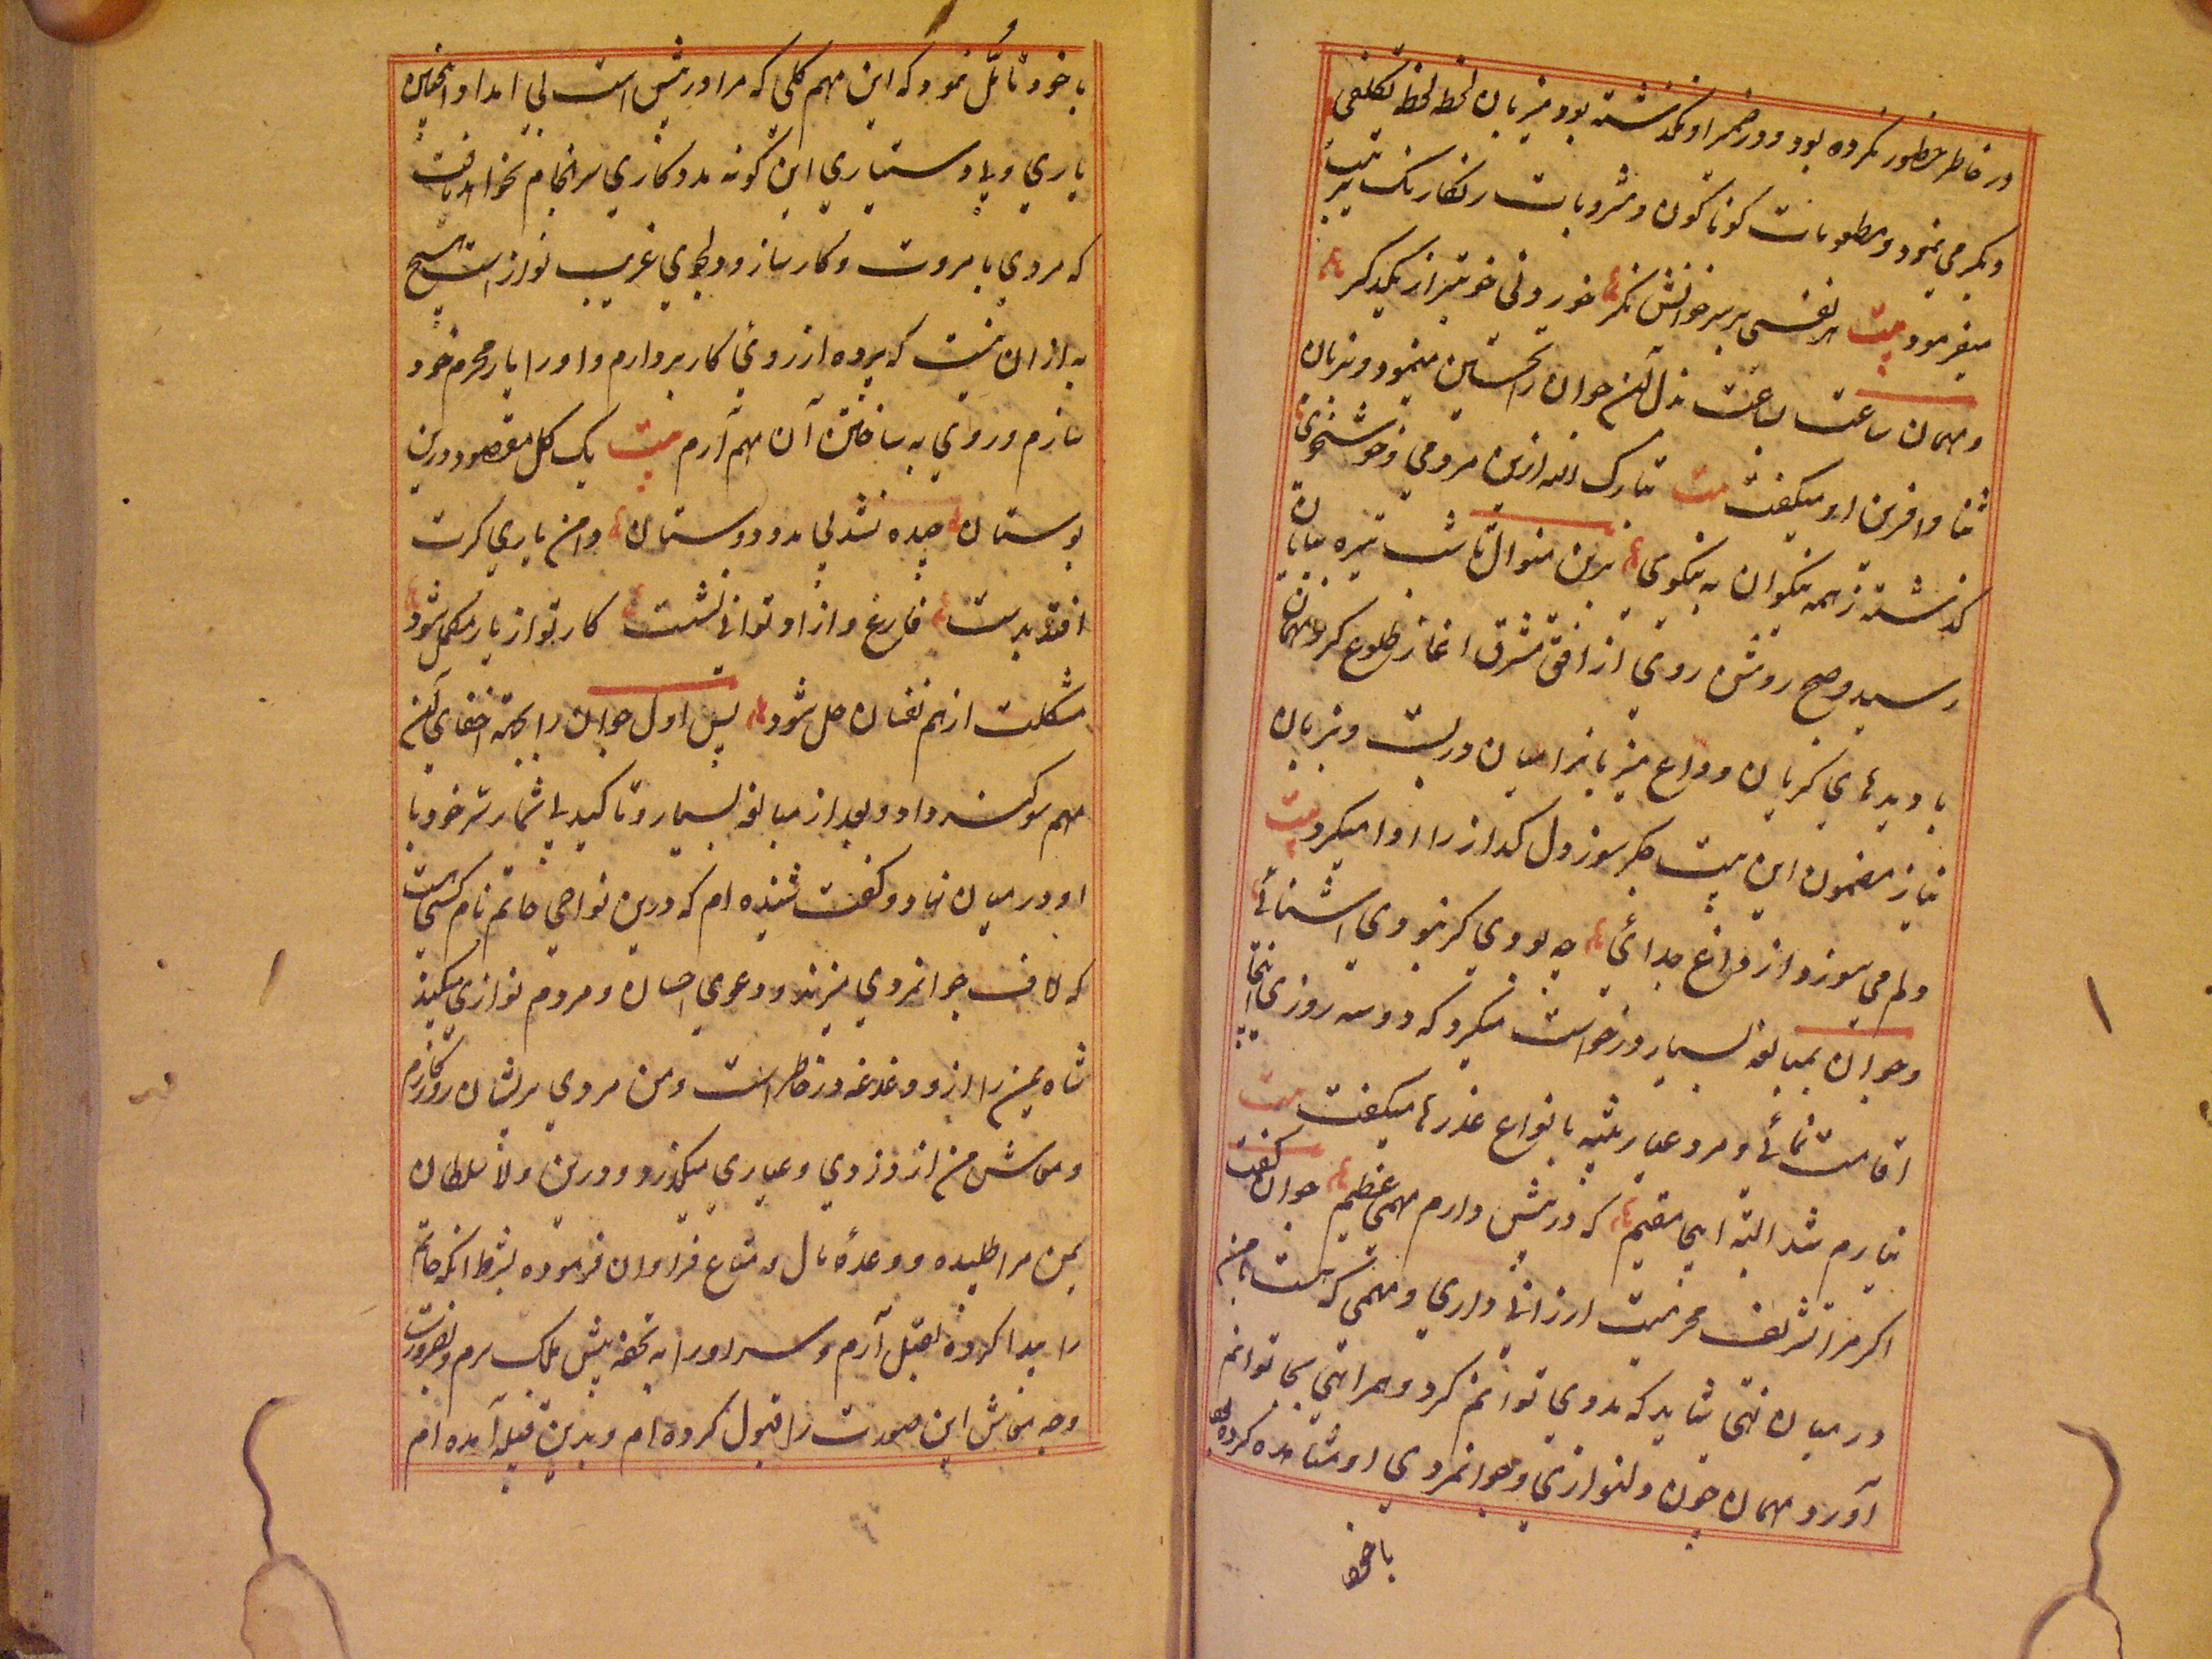 در خاطر خطور نکرده بود و در ضمیر او نگذشته بود میزبان لحظه لحظه تکلفی
دیگر می نمود و مطعومات کوناکون و مشروبات رنکارنک ترتیب
میفرمود بیت هر نفسی بر سر خوانش نکر خوردنی خوشتر از یکدکر
و مهمان ساعت بساعت بذل آن جوان را تحسین مینمود و بزبان
ثنا و افرین او میکفت بیت تبارک الله ازین مردمی و خوشخوی
کذشته ز همه نیکوان به نیکوی برین منوال تا شب تیره بپایان
رسید و صبح روشن روی از افق مشرق اغاز طلوع کرد مهمان
با دیدهای کریان وداع میزبانرا میان دربست و بزبان
نیاز مضمون این بیت جکر سوز دل کداز را ادا میکرد بیت
دلم می سوزد از داغ جدائی چه بودی کر نبودی اشنائی
و جوان بمبالغه بسیار درخواست میکرد که دو سه روزی اینجا
اقامت نمائی و مرد عیار پیشه بانواع عذرها میکفت بیت
نیارم شد البته اینجا مقیم که در پیش دارم مهمی عظیم جوان کفت
اکر مرا تشریف محرمیت ارزانی داری و مهمی که هست با من
در میان نهی شاید که مددی توانم کرد و همراهی بجا توانم
آورد مهمان چون دلنوازی و جوانمردی او مشاهده کرده
با خود
با خود تأمّل نمود که این مهم کلی که مرا در پیش است بی امداد اینچنین
یاری و بی دستیاری این کونه مددکاری سرانجام نخواهد یافت
که مردی با مروت و کارساز و دلجوی غریب نواز است هیچ
به از ان نیست که پرده از روی کار بردارم و او را یار محرم خود
سازم و روی به ساختن آن مهم آرم بیت یک کل مقصود درین
بوستان چیده نشد بی مدد دوستان دامن یاری کرت
افتد بدست فارغ و ازاد توانی نشست کار تو از یار مکمل شود
مشکلت از هم نفسان حل شود پس اول جوان را بجهة اخفای آن
مهم سوکند داد و بعد از مبالغه بسیار و تاکید بی شمار سر خود با
او در میان نهاد و کفت شنیده ام که درین نواحی حاتم نام کسی هست
که لاف جوانمردی میزند و دعوی احسان و مردم نوازی میکند
شاه یمن را ازو دغدغه در خاطر است و من مردی پریشان روزکارم
و معاش من از دزدی و عیاری میکذرد و درین ولا سلطان
یمن مرا طلبیده و وعدۀ مال و متاع فراوان فرموده بشرط انکه حاتم
را پیدا کرده بقتل آرم و سر او را به تحفه پیش ملک برم و بضرورت
وجه معاش این صورت را قبول کرده ام و بدین قبیله آمده ام